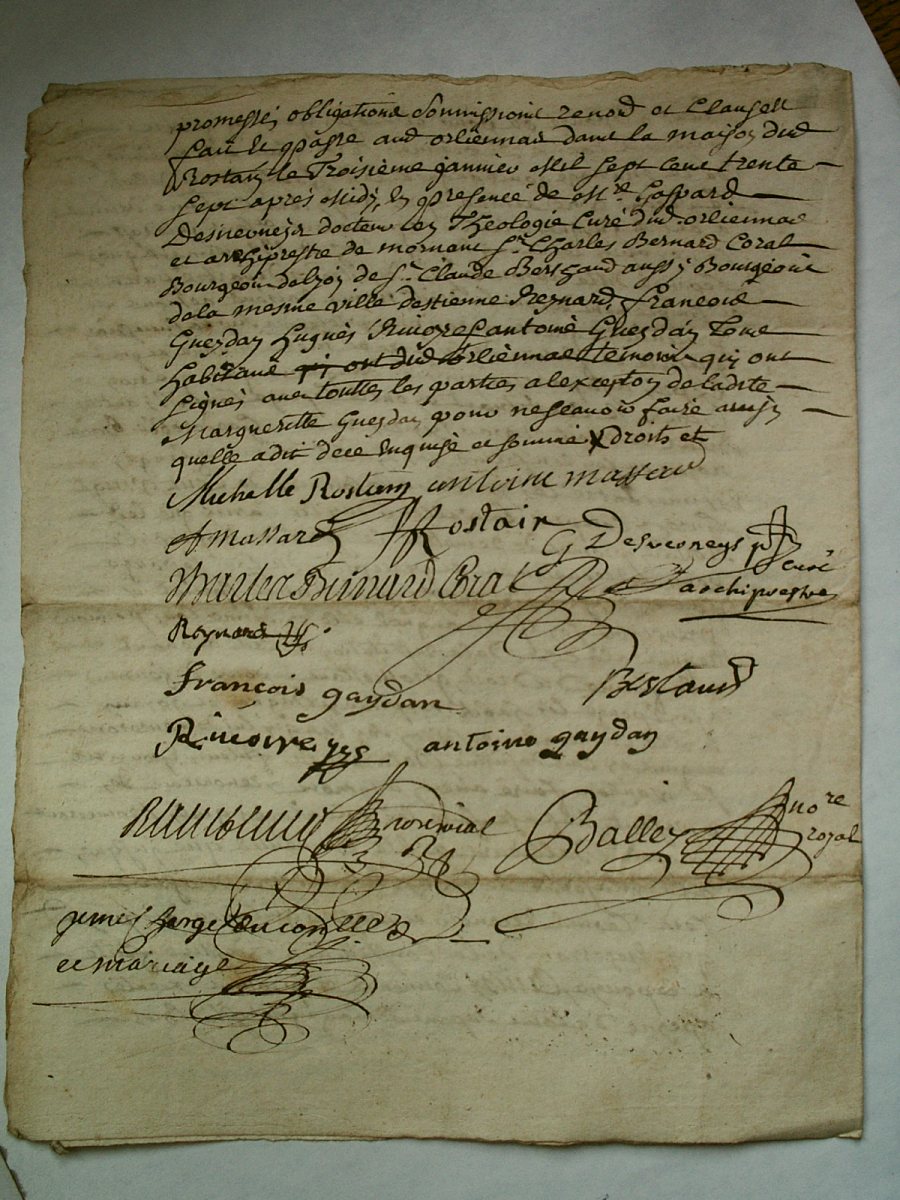 promesses obligations soumissions renond et clauses
fait et passé aud orliennas dans la maison dud
Rostain le Troisième janvier Mil sept cent trente
sept après Midy, en presence de Mre Gaspard
Desverneys docteur en Theologie Curé dud orliennas
et archiprestre de mornant Sr Charles Bernard Coral
Bourgeois de Lyon de Sr Claude Berthaud aussy Bourgeois
de la mesme ville destienne Reynard, francois
Gueydan hugues Rivoyre et antoine Gueydan Tous
habitans qui ont dud orliennas temoins qui ont
signés avec touttes les parties a lexception de ladite
Margueritte Gueydan pour ne scavoir faire ainsy
quelle a dit de ce enquise et sommée X droits et
Michelle Rostain antoine massard
A massard Rostain
G Desverneys curé
archiprestre
Charles Bernard Coral
Reynard
françois gaydan
Rivoire antoine gaydan
Balley nore
royal
et mariage